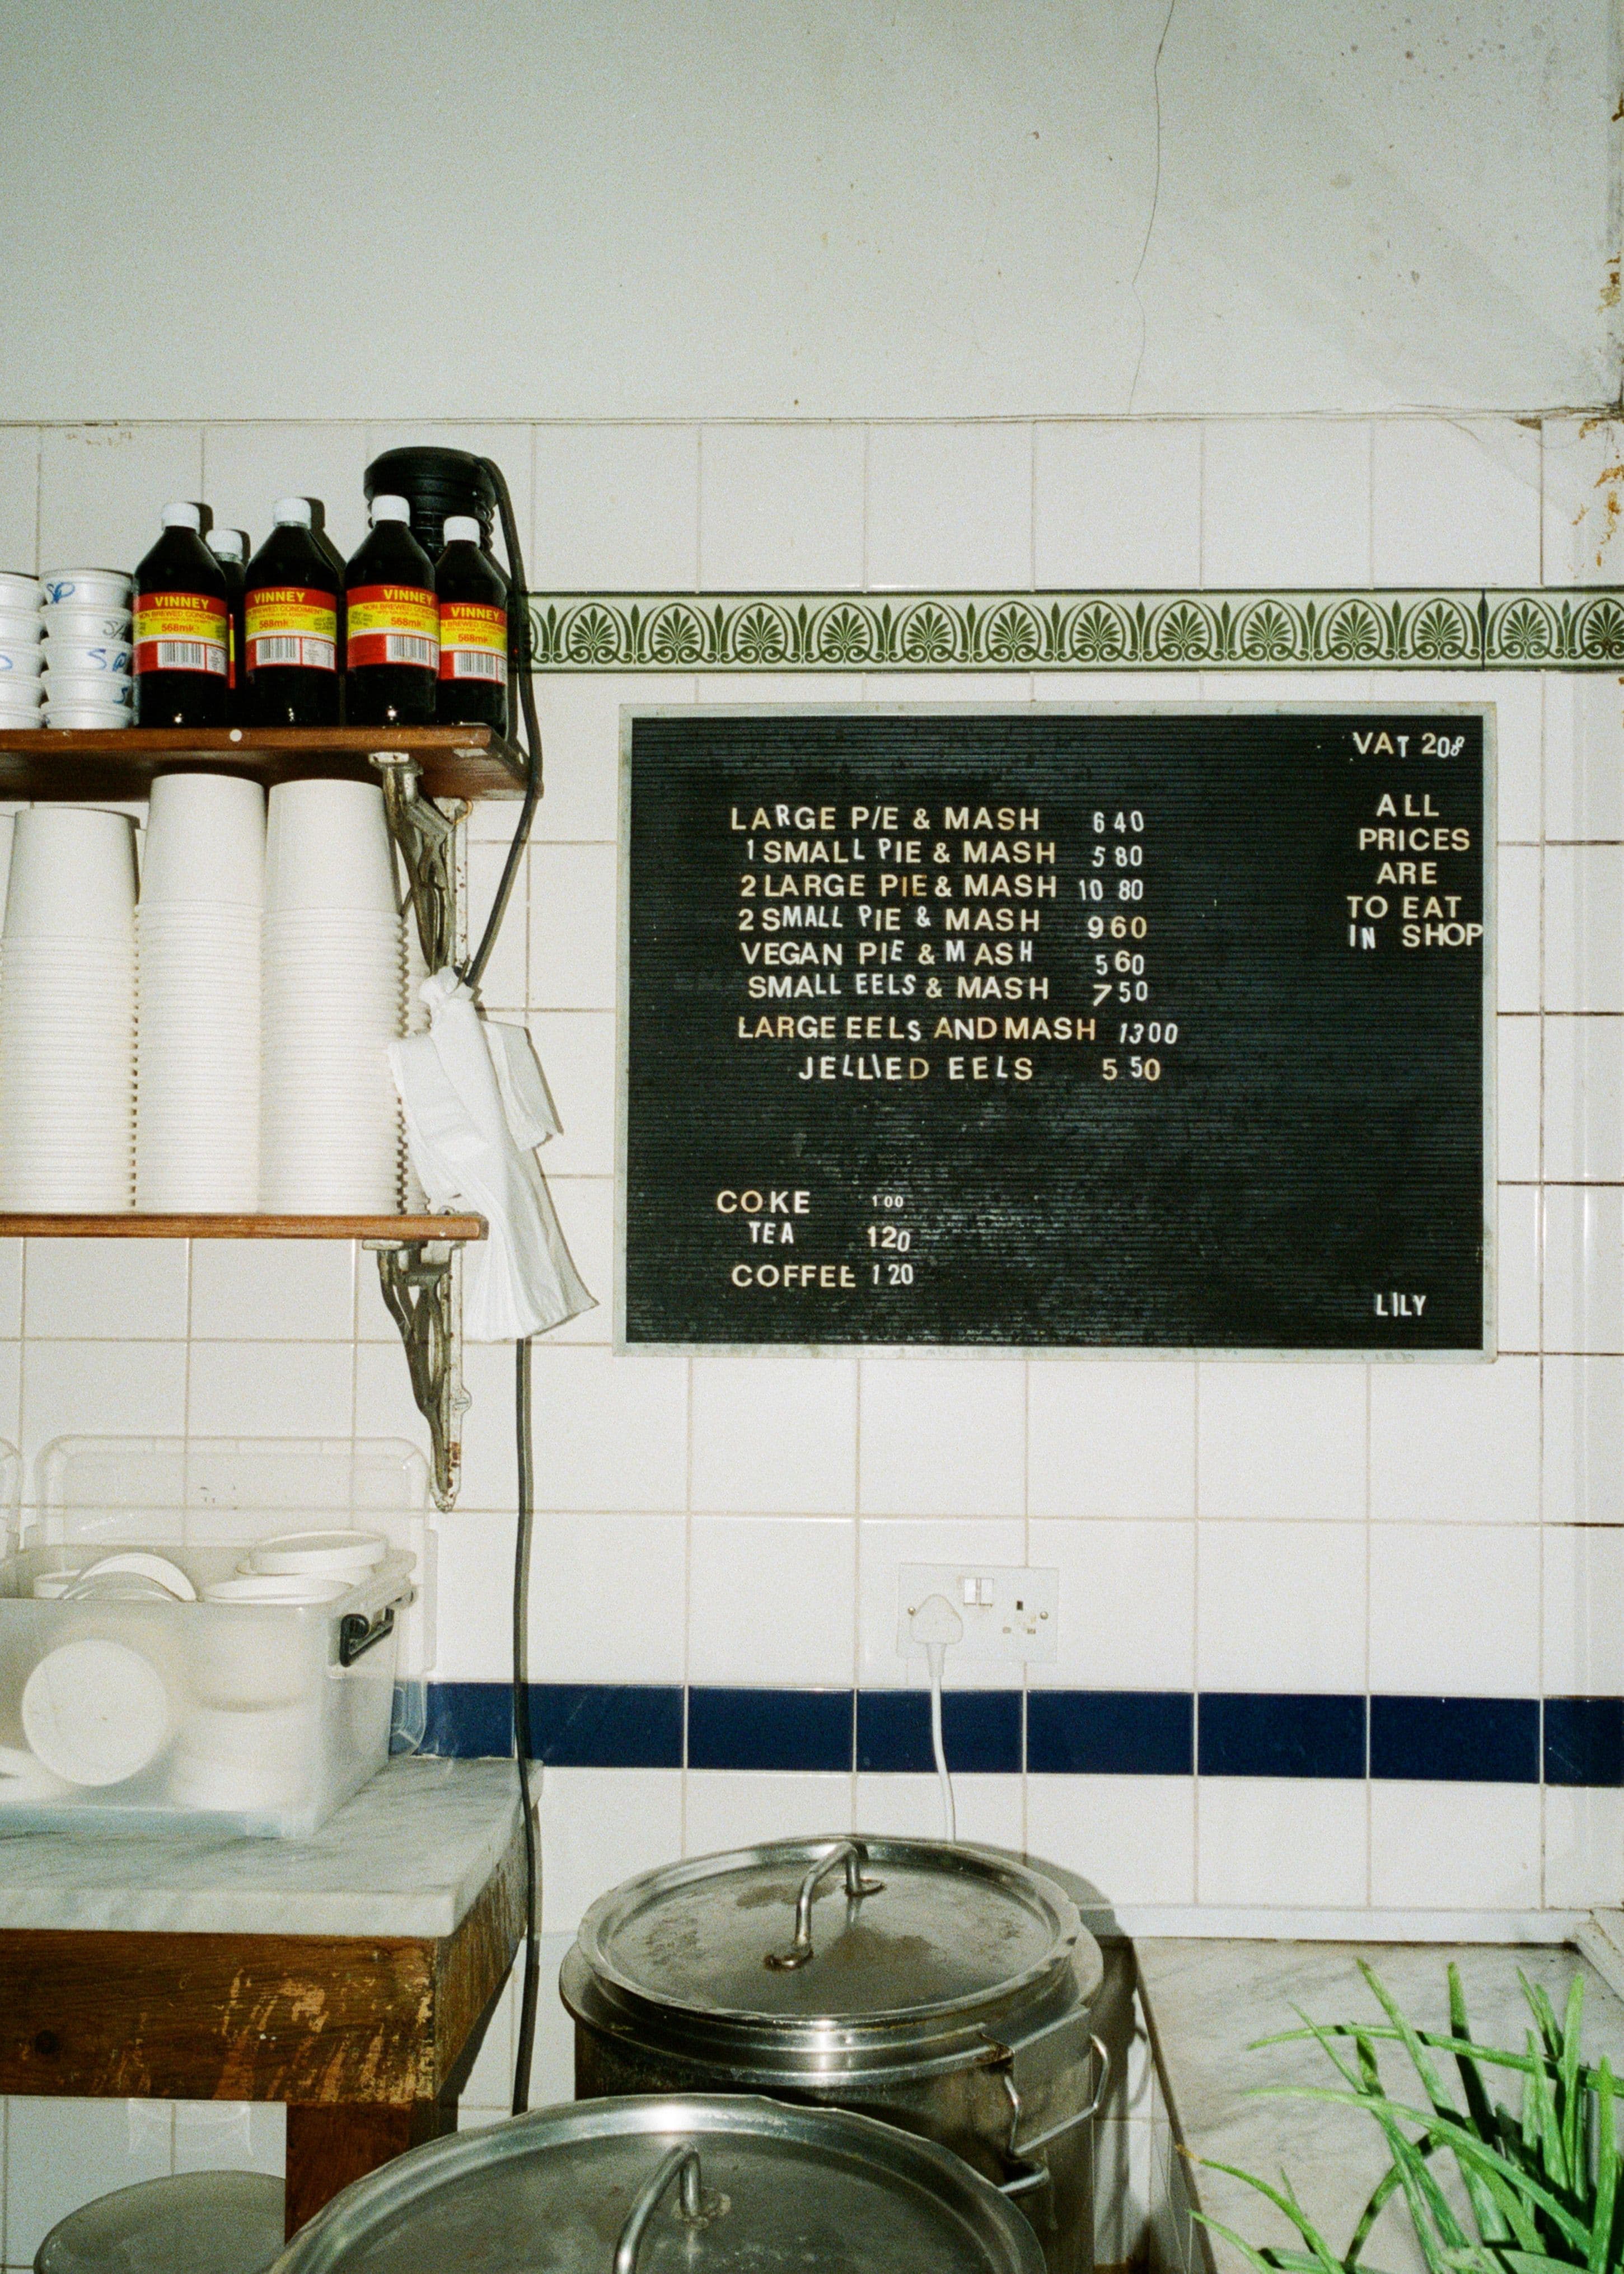 VINNEY
NON BREWED CONDIMENT
568ml
VINNEY
NON BREWED CONDIMENT
568ml
VINNEY
NON BREWED CONDIMENT
568ml
VINNEY
568ml
VAT 208
LARGE P/E & MASH 6 40
1 SMALL PIE & MASH 5 80
2 LARGE PIE & MASH 10 80
2 SMALL PIE & MASH 9 60
VEGAN PIE & MASH 5 60
SMALL EELS & MASH 7 50
LARGE EELS AND MASH 1300
JELLIED EELS 5 50
ALL
PRICES
ARE
TO EAT
IN SHOP
COKE 1 00
TEA 120
COFFEE 1 20
LILY